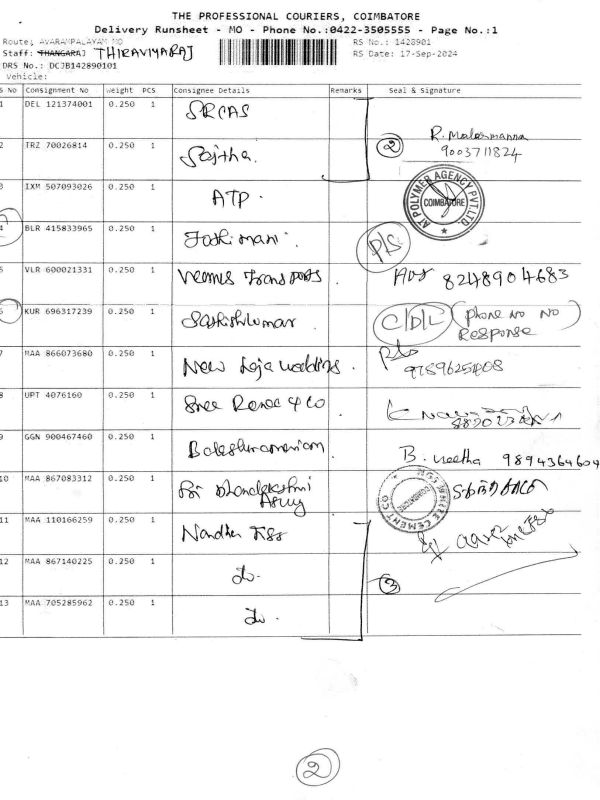 THE PROFESSIONAL COURIERS, COIMBATORE
Delivery Runsheet - MO - Phone No.:0422-3505555 - Page No.:1
Route: AVARAMPALAYAM MO RS No.: 1428901
Staff: THANGARAJ THIRAVIYARAJ RS Date: 17-Sep-2024
DRS No.: DCJB142890101
Vehicle:
S No Consignment No Weight PCS Consignee Details Remarks Seal & Signature
1 DEL 121374001 0.250 1 SRCAS
2 TRZ 70026814 0.250 1 Sajitha. 2 R.
9003711824
3 IXM 507093026 0.250 1 ATP. AT POLYMER AGENCY PVT.LTD COIMBATORE
4 BLR 415833965 0.250 1 P/S
5 VLR 600021331 0.250 1 Venus Transports 8248904683
6 KUR 696317239 0.250 1 Sathishkumar C/D/L (phone no no Response)
7 MAA 866073680 0.250 1 New P/S
8 UPT 4076160 0.250 1 Sree & Co
9 GGN 900467460 0.250 1 Balasubramaniam B. 9894364604
10 MAA 867083312 0.250 1 Sri CEMENT CO COIMBATORE
11 MAA 110166259 0.250 1
12 MAA 867140225 0.250 1 Do. 3
13 MAA 705285962 0.250 1 Do.
2